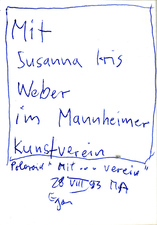 Mit
Susanna Iris
Weber
im Mannheimer
Kunstverein
Polaroid "Mit ... Verein"
28 VIII 93 MA